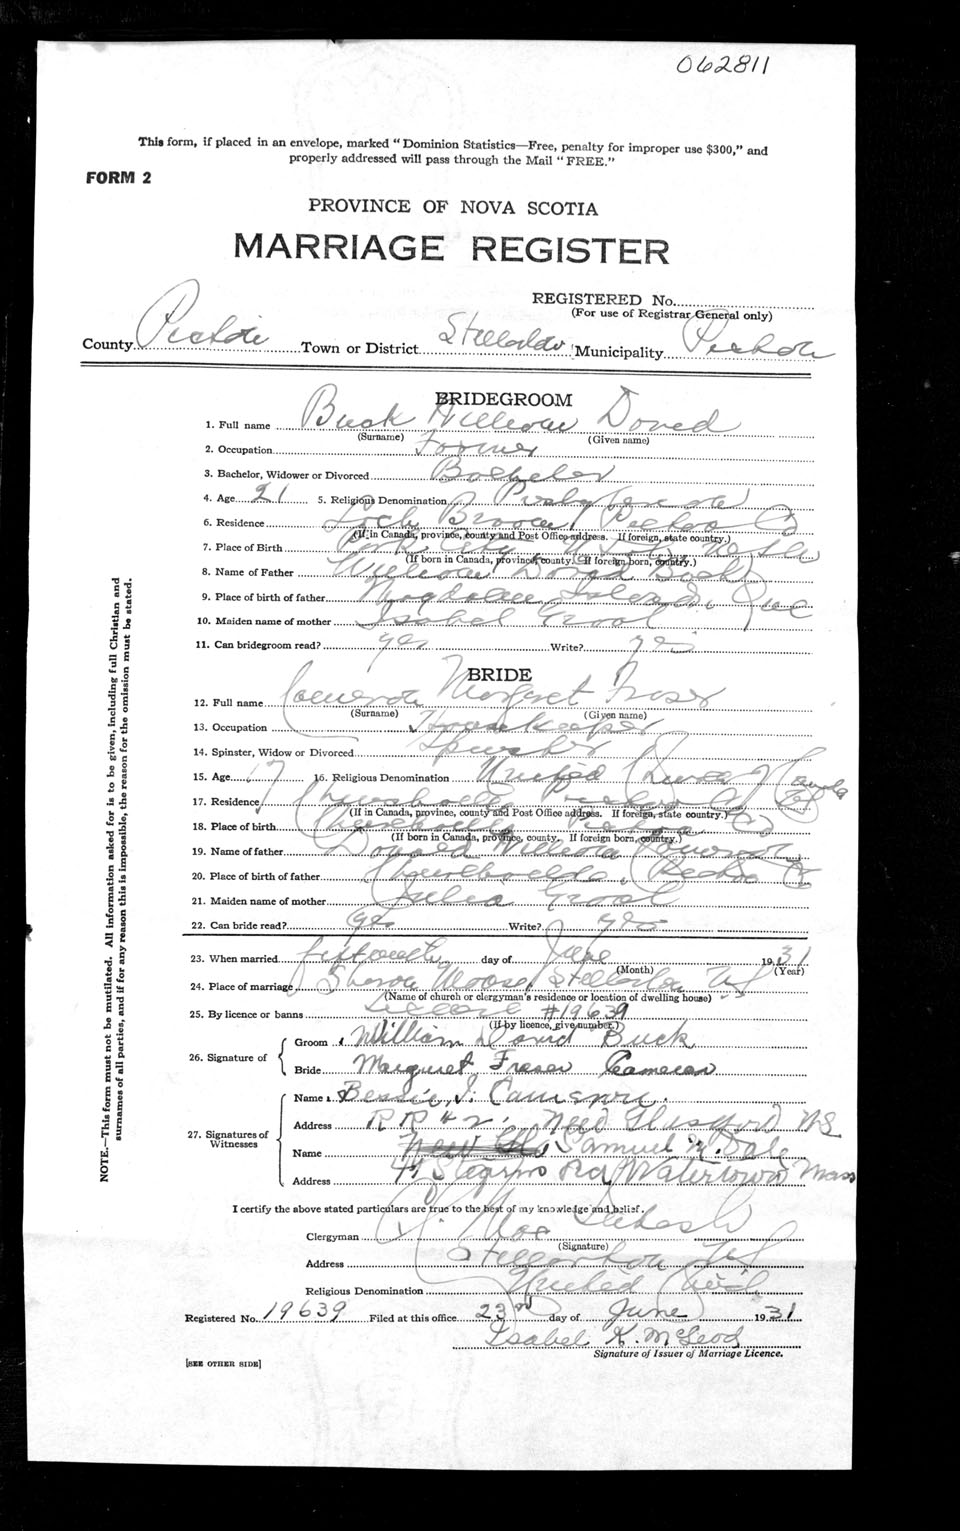 062811
This form, if placed in an envelope, marked "Dominion Statistics—Free, penalty for improper use $300," and
properly addressed will pass through the Mail "FREE."
FORM 2
PROVINCE OF NOVA SCOTIA
MARRIAGE REGISTER
REGISTERED No.
(For use of Registrar General only)
County Pictou Town or District Stellarton Municipality Pictou
BRIDEGROOM
1. Full name Buck William David
(Surname) (Given name)
2. Occupation Farmer
3. Bachelor, Widower or Divorced Bachelor
4. Age 21 5. Religious Denomination Presbyterian
6. Residence Loch Broom Pictou Co
(If in Canada, province, county and Post Office address. If foreign, state country.)
7. Place of Birth
(If born in Canada, province, county. If foreign born, country.)
8. Name of Father William David Buck
9. Place of birth of father Magdalen Islands, Que
10. Maiden name of mother Isabel
11. Can bridegroom read? yes Write? yes
BRIDE
12. Full name Cameron Margaret Fraser
(Surname) (Given name)
13. Occupation Housekeeper
14. Spinster, Widow or Divorced Spinster
15. Age 17 16. Religious Denomination United Church of Canada
17. Residence Pictou Co
(If in Canada, province, county and Post Office address. If foreign, state country.)
18. Place of birth Pictou Co
(If born in Canada, province, county. If foreign born, country.)
19. Name of father Donald William Cameron
20. Place of birth of father Pictou Co
21. Maiden name of mother
22. Can bride read? yes Write? yes
23. When married fifteenth day of June 1931
(Month) (Year)
24. Place of marriage Manse, Stellarton NS
(Name of church or clergyman's residence or location of dwelling house)
25. By licence or banns License #19639
(If by licence, give number.)
26. Signature of
Groom William David Buck
Bride Margaret Fraser Cameron
27. Signatures of Witnesses
Name Bessie J. Cameron
Address RR #2, New Glasgow NS
Name Samuel Dale
Address Rd Watertown Mass
I certify the above stated particulars are true to the best of my knowledge and belief.
Clergyman
(Signature)
Address Stellarton NS
Religious Denomination United Church
Registered No. 19639 Filed at this office 23rd day of June 1931
Isabel K. McLeod
Signature of Issuer of Marriage Licence.
[SEE OTHER SIDE]
NOTE.—This form must not be mutilated. All information asked for is to be given, including full Christian and
surnames of all parties, and if for any reason this is impossible, the reason for the omission must be stated.